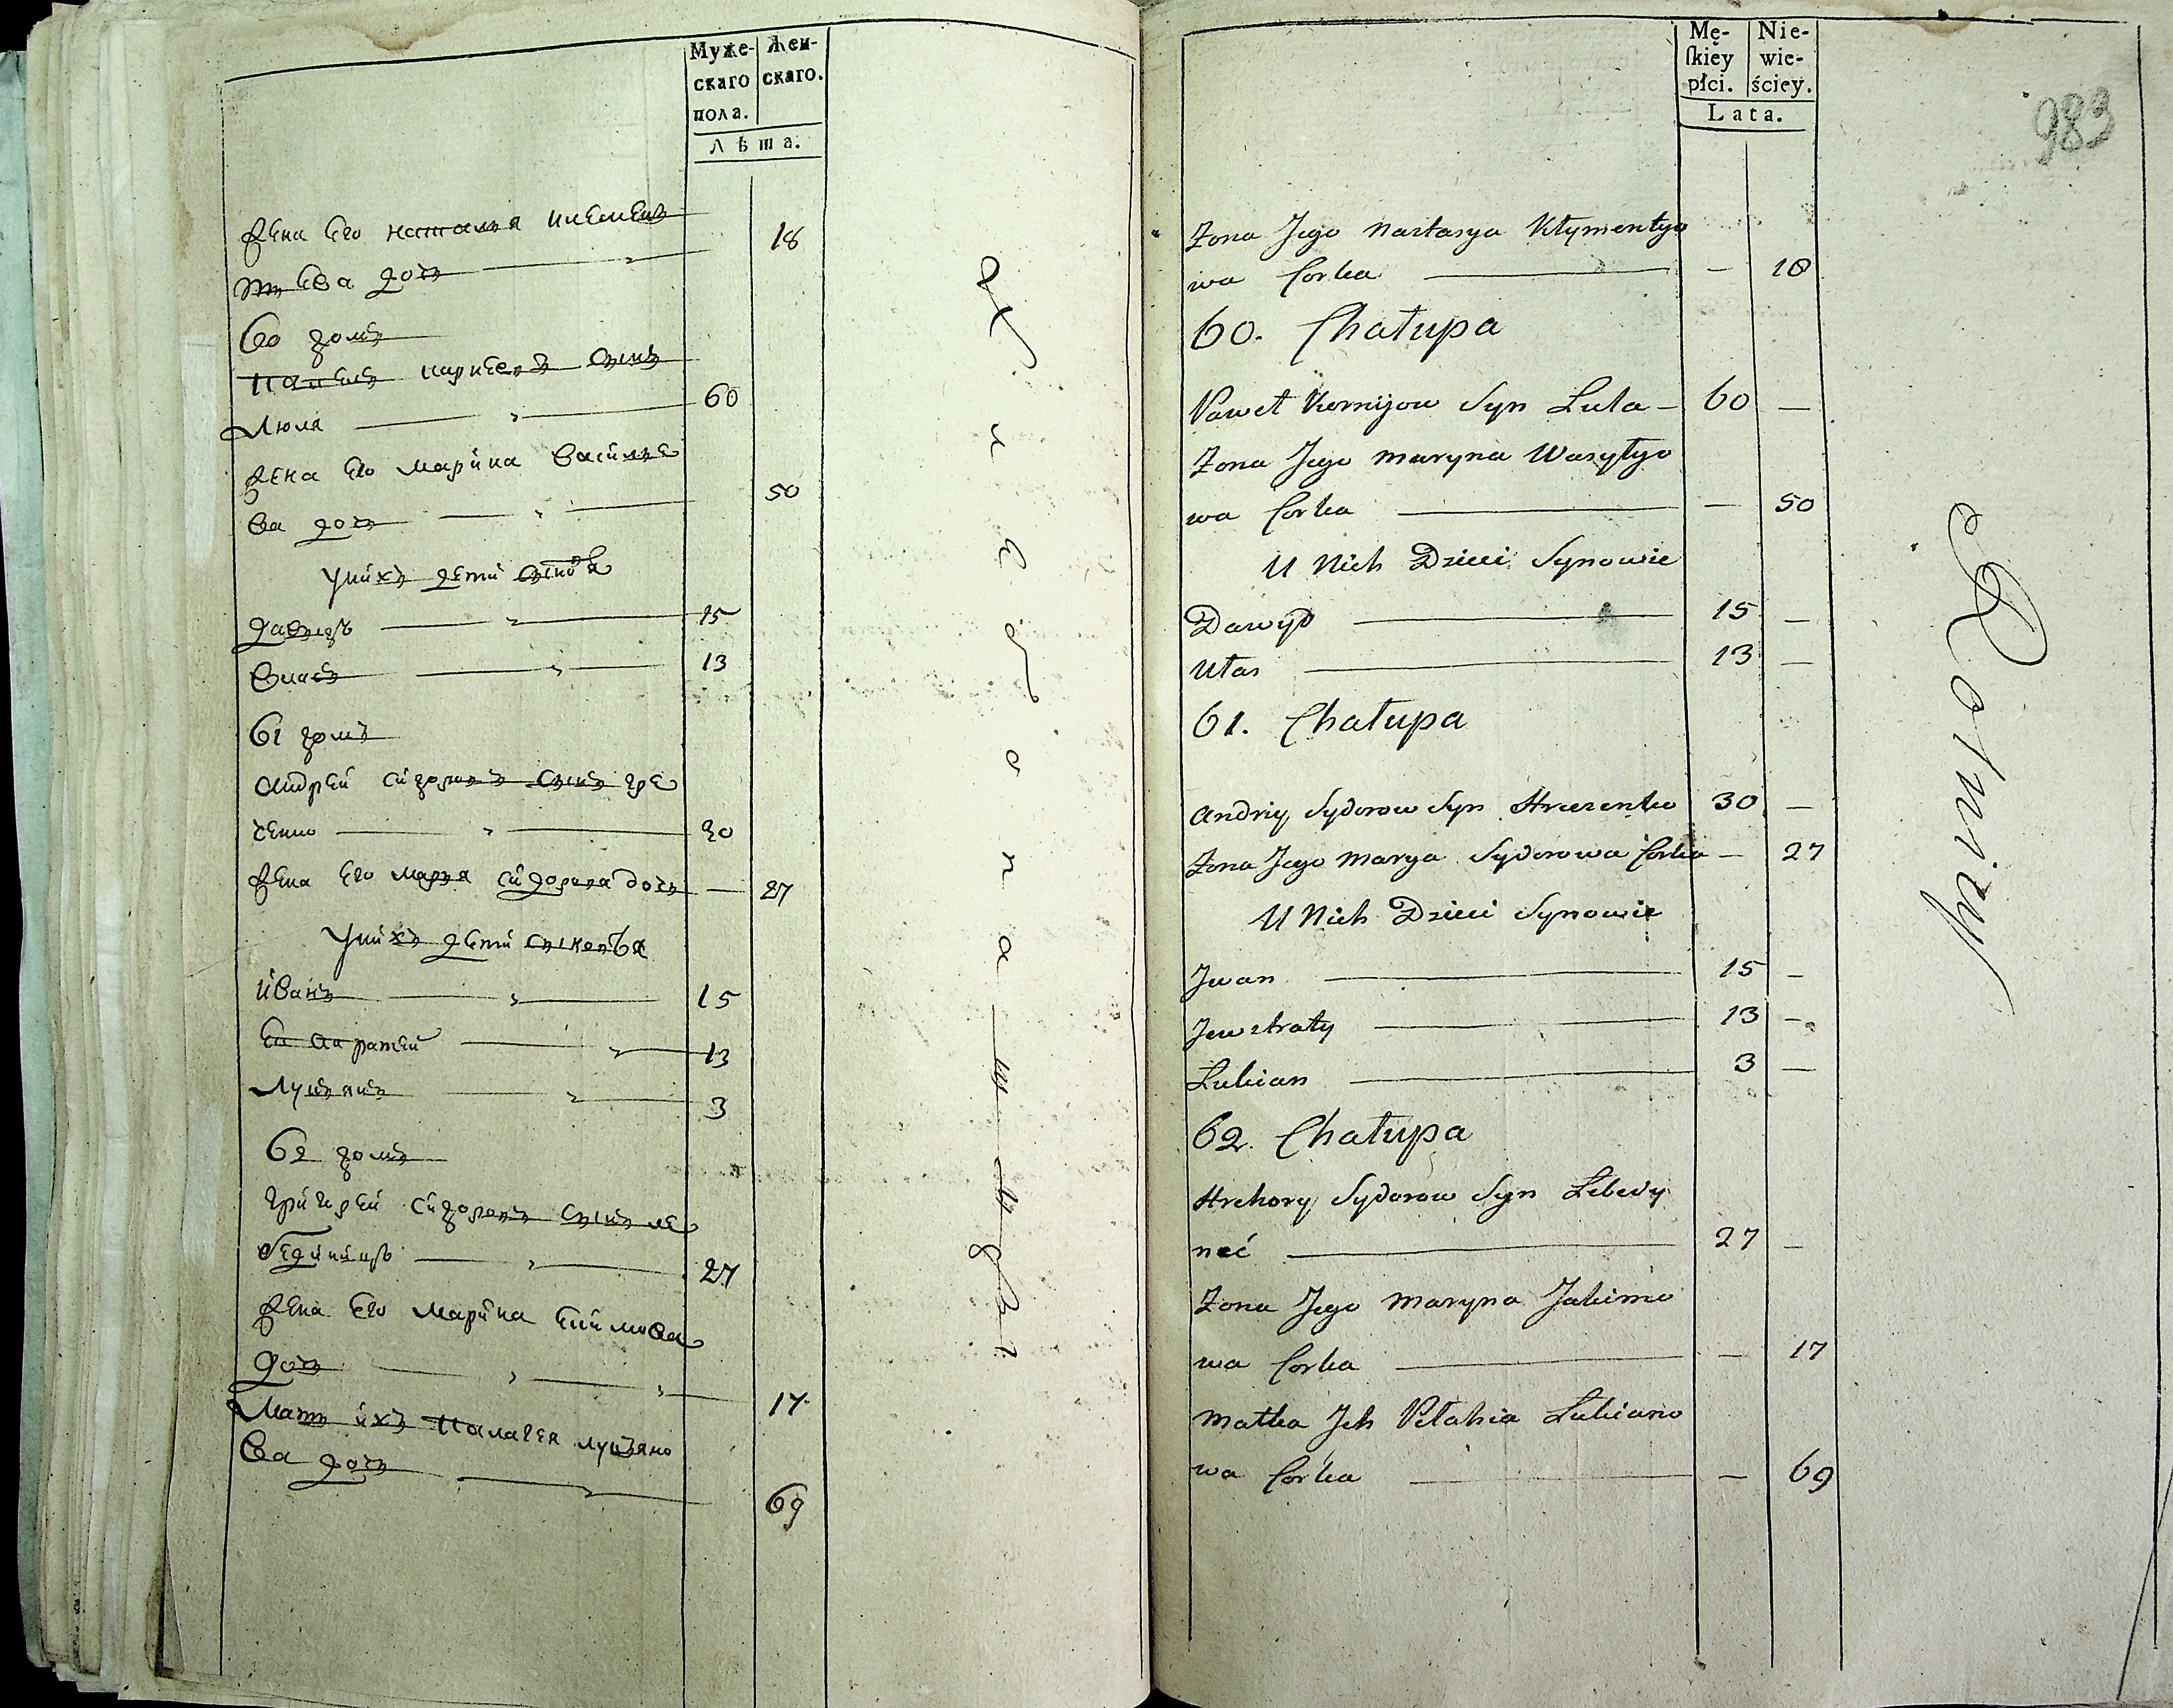 Муже-
скаго
пола.
Жен-
скаго.
Лѣта.
жена его наталия клемен
тьева дочь 18
60 домъ
Павелъ карнеевъ сынъ
Люля 60
жена его марина василье
ва дочь 50
у нихъ дети сыновя
давыдъ 15
власъ 13
61 домъ
андрей сидоровъ сынъ гре
ченко 30
жена его маря сидорова дочь — 27
у нихъ дети сыновья
иванъ 15
13
Лукянъ 3
62 домъ
григорей сидоровъ сынъ ле
бединецъ 27
жена его марина екимова
дочь 17
Мать ихъ палагея лукяно
ва дочь 69
Mę-
ſkiey
płci.
Nie-
wie-
ściey.
Lata.
983
Zona Jego Nastasya Kłymentyo
wa Corka — 18
60. Chałupa
Paweł Kornijow Syn Lula — 60 —
Zona Jego Maryna Wasylyo
wa Corka — 50
U Nich Dzieci Synowie
Dawyd 15 —
Ułas 13 —
61. Chałupa
Andriy Sydorow Syn Hreczenko 30 —
Zona Jego Marya Sydorowa Corka — 27
U Nich Dzieci Synowie
Jwan 15 —
Jewstraty 13 —
Lukian 3 —
62. Chałupa
Hrehory Sydorow Syn Lebedy
neć 27 —
Zona Jego Maryna Jakimo
wa Corka — 17
Matka Jch Pełahia Lukiano
wa Corka — 69
Rotmistrz